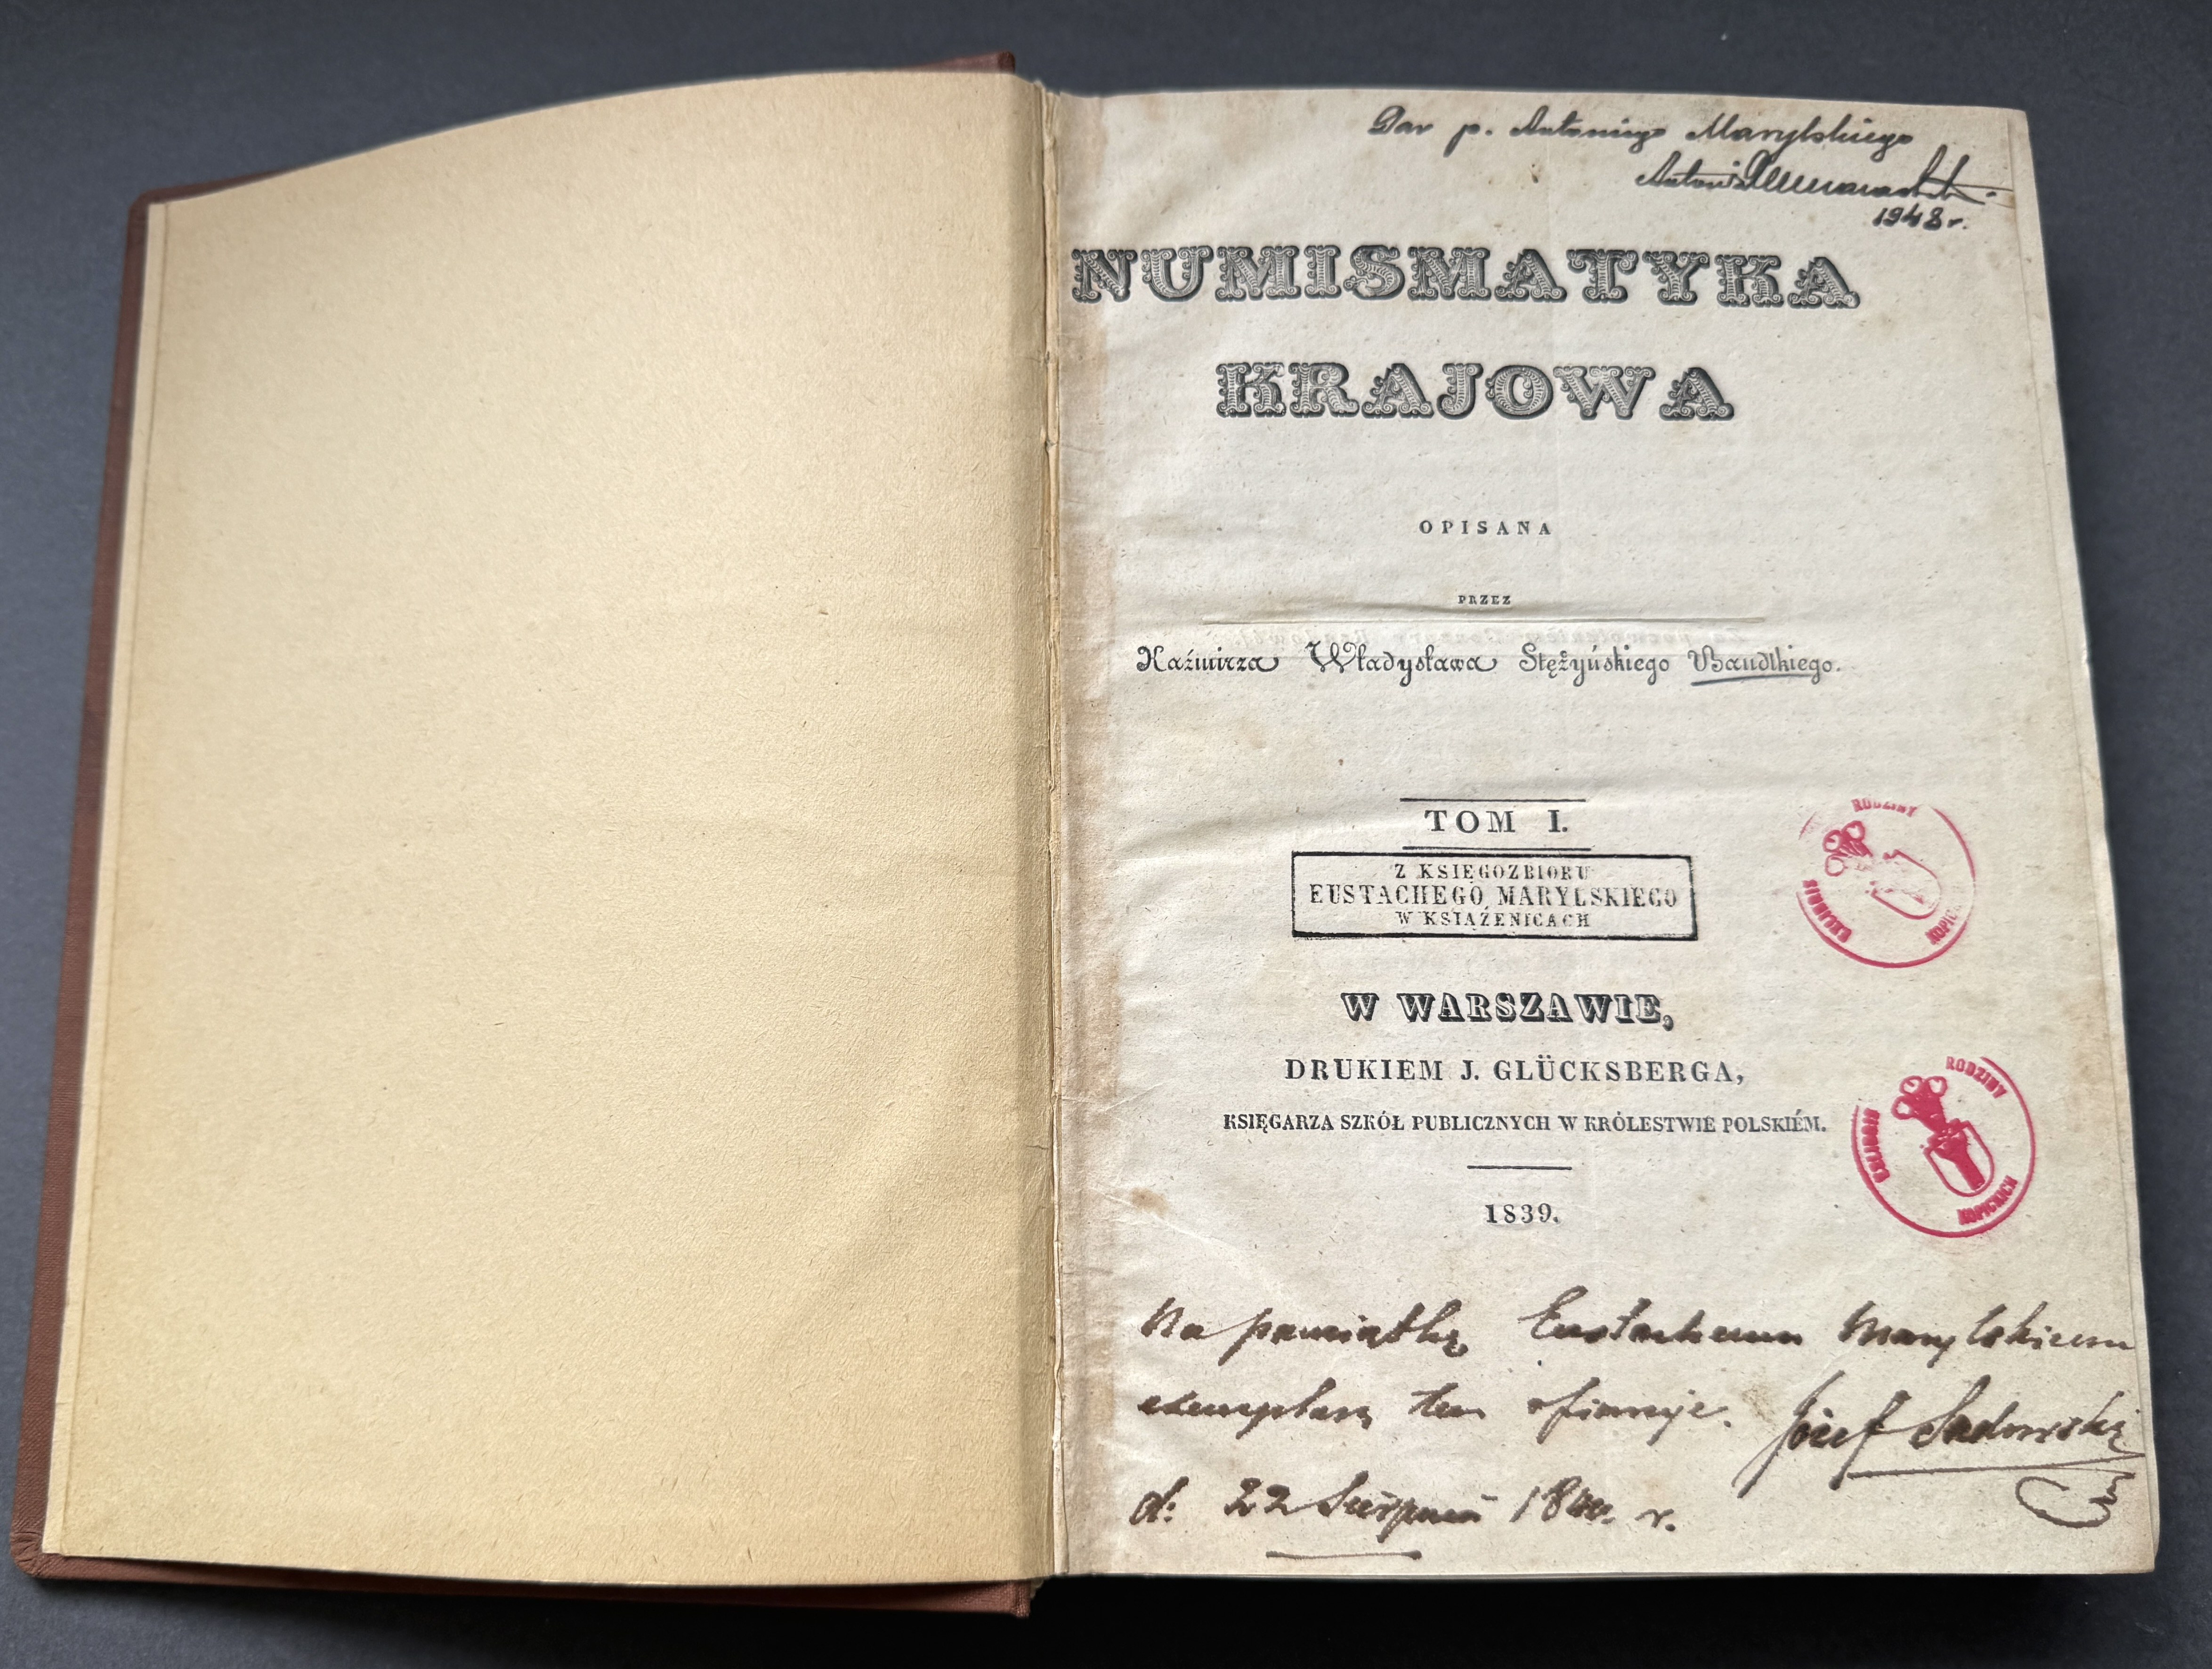 Dar p. Antoniego Marylskiego
Antoni
1948 r.
NUMISMATYKA
KRAJOWA
OPISANA
PRZEZ
Kaźmirza Władysława Stężyńskiego Bandtkiego.
TOM I.
Z KSIĘGOZBIORU
EUSTACHEGO MARYLSKIEGO
W KSIĄŻENICACH
RODZINY
KOPIC
W WARSZAWIE,
DRUKIEM J. GLÜCKSBERGA,
KSIĘGARZA SZKÓŁ PUBLICZNYCH W KRÓLESTWIE POLSKIÉM.
RODZINY
KOPICKICH
1839.
Na pamiątkę Eustachemu Marylskiemu
exemplarz ten ofiaruje. Józef Sadowski
d: 22 Sierpnia r.